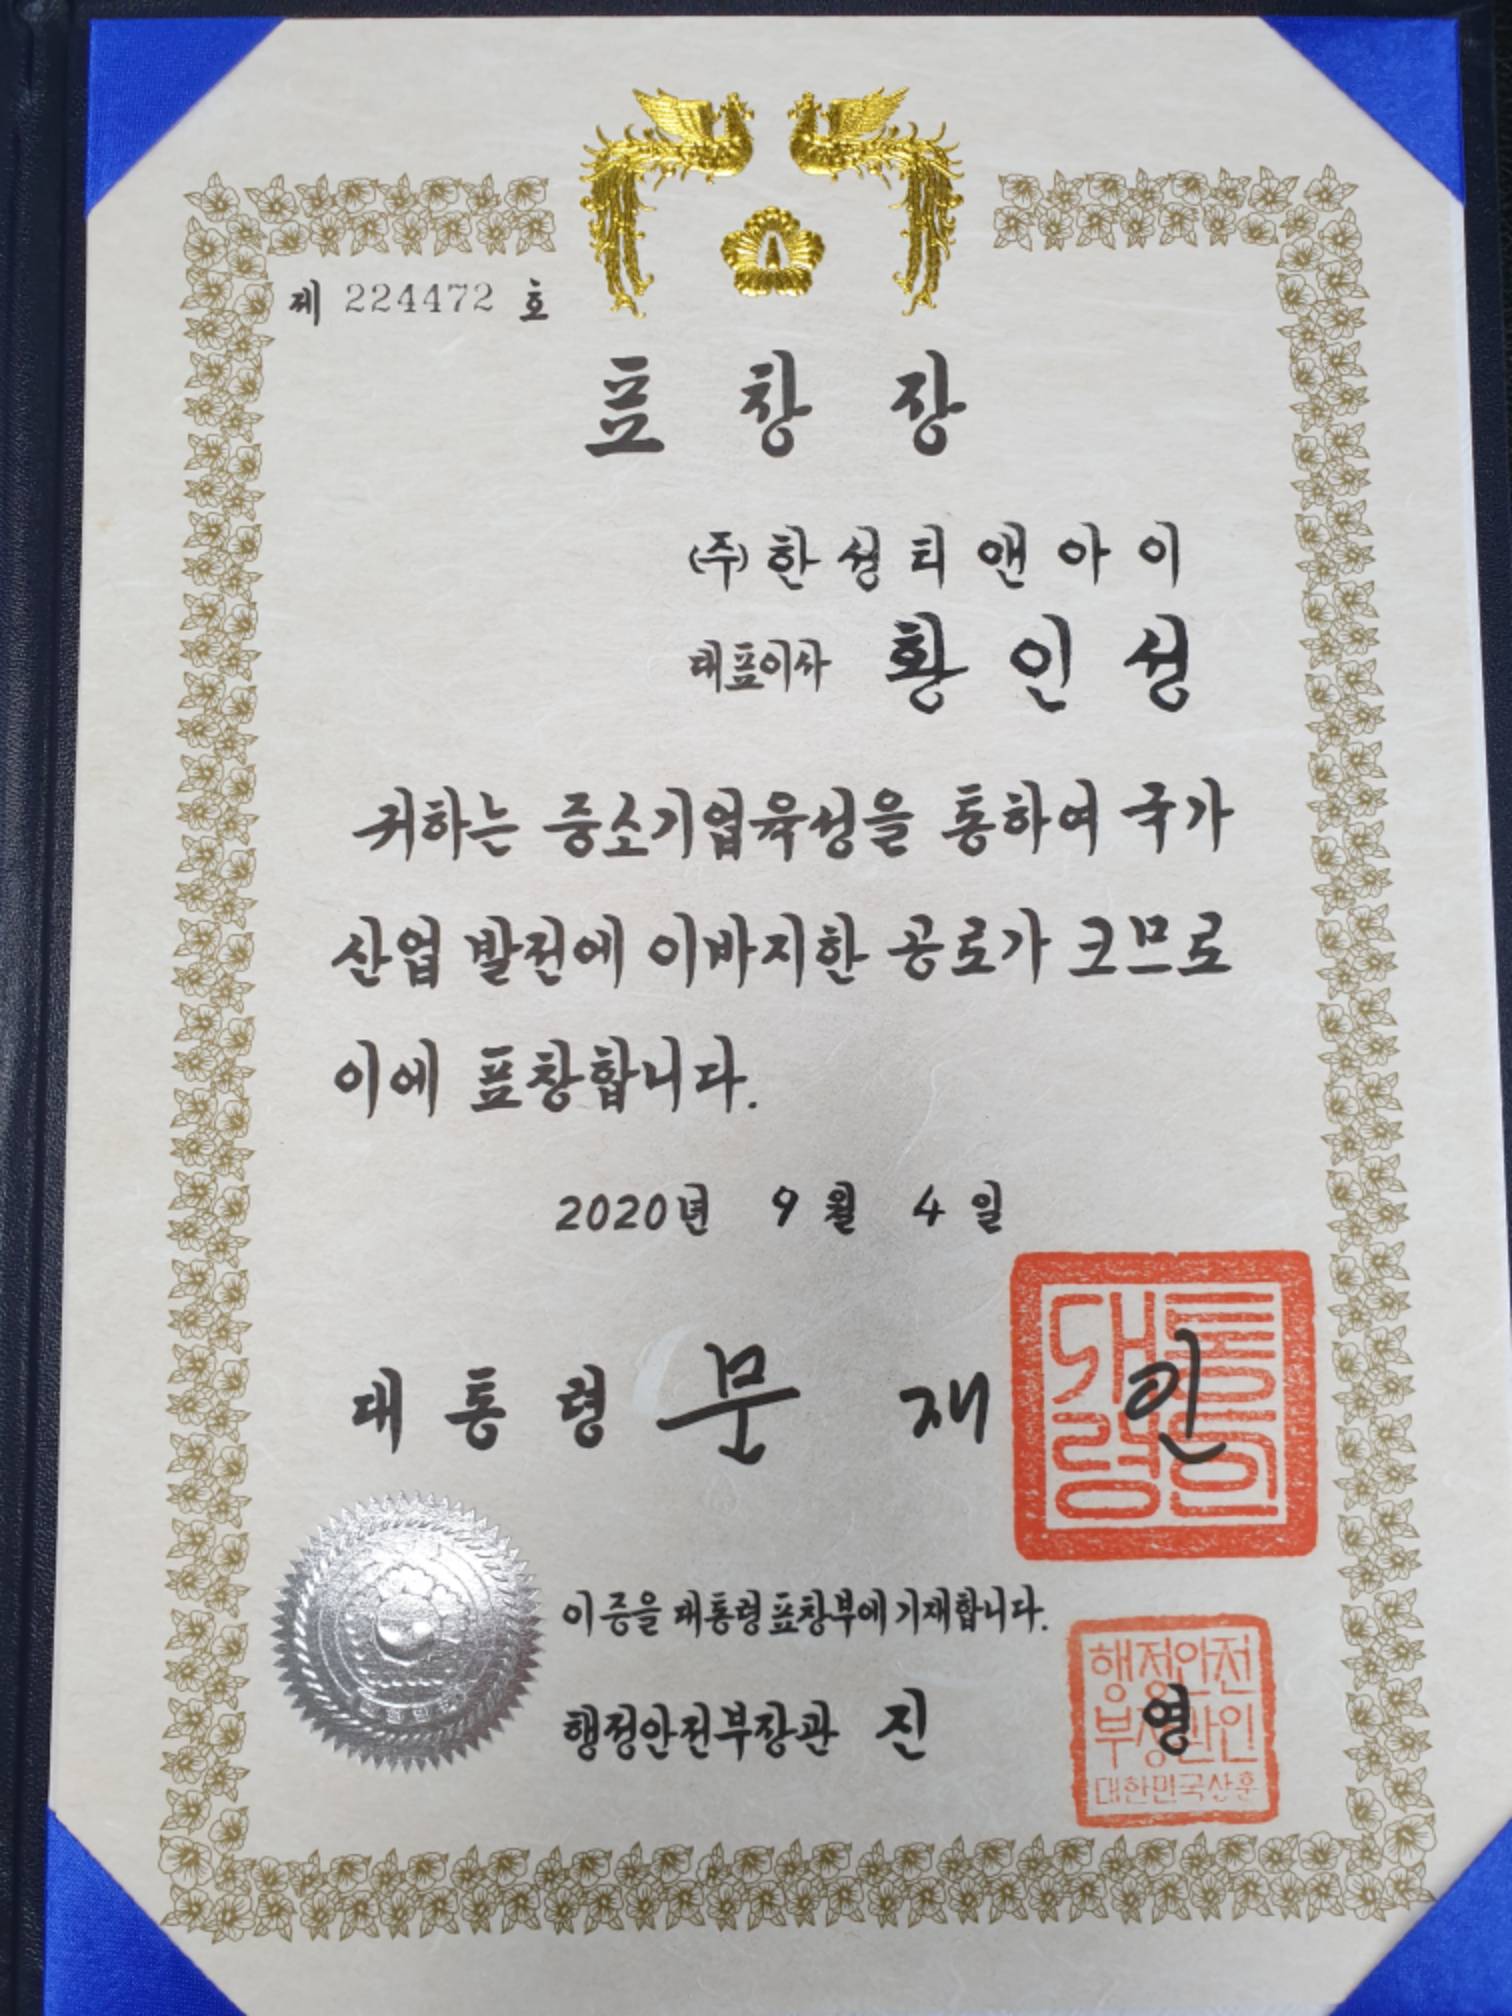 제 224472 호
표 창 장
(주) 한 성 티 앤 아 이
대표이사 황 인 성
귀하는 중소기업육성을 통하여 국가
산업 발전에 이바지한 공로가 크므로
이에 표창합니다.
2020년 9월 4일
대 통 령 문 재 인
대통
령인
이 증을 대통령표창부에 기재합니다.
행정안전부장관 진 영
행정안전
부장관인
대한민국상훈